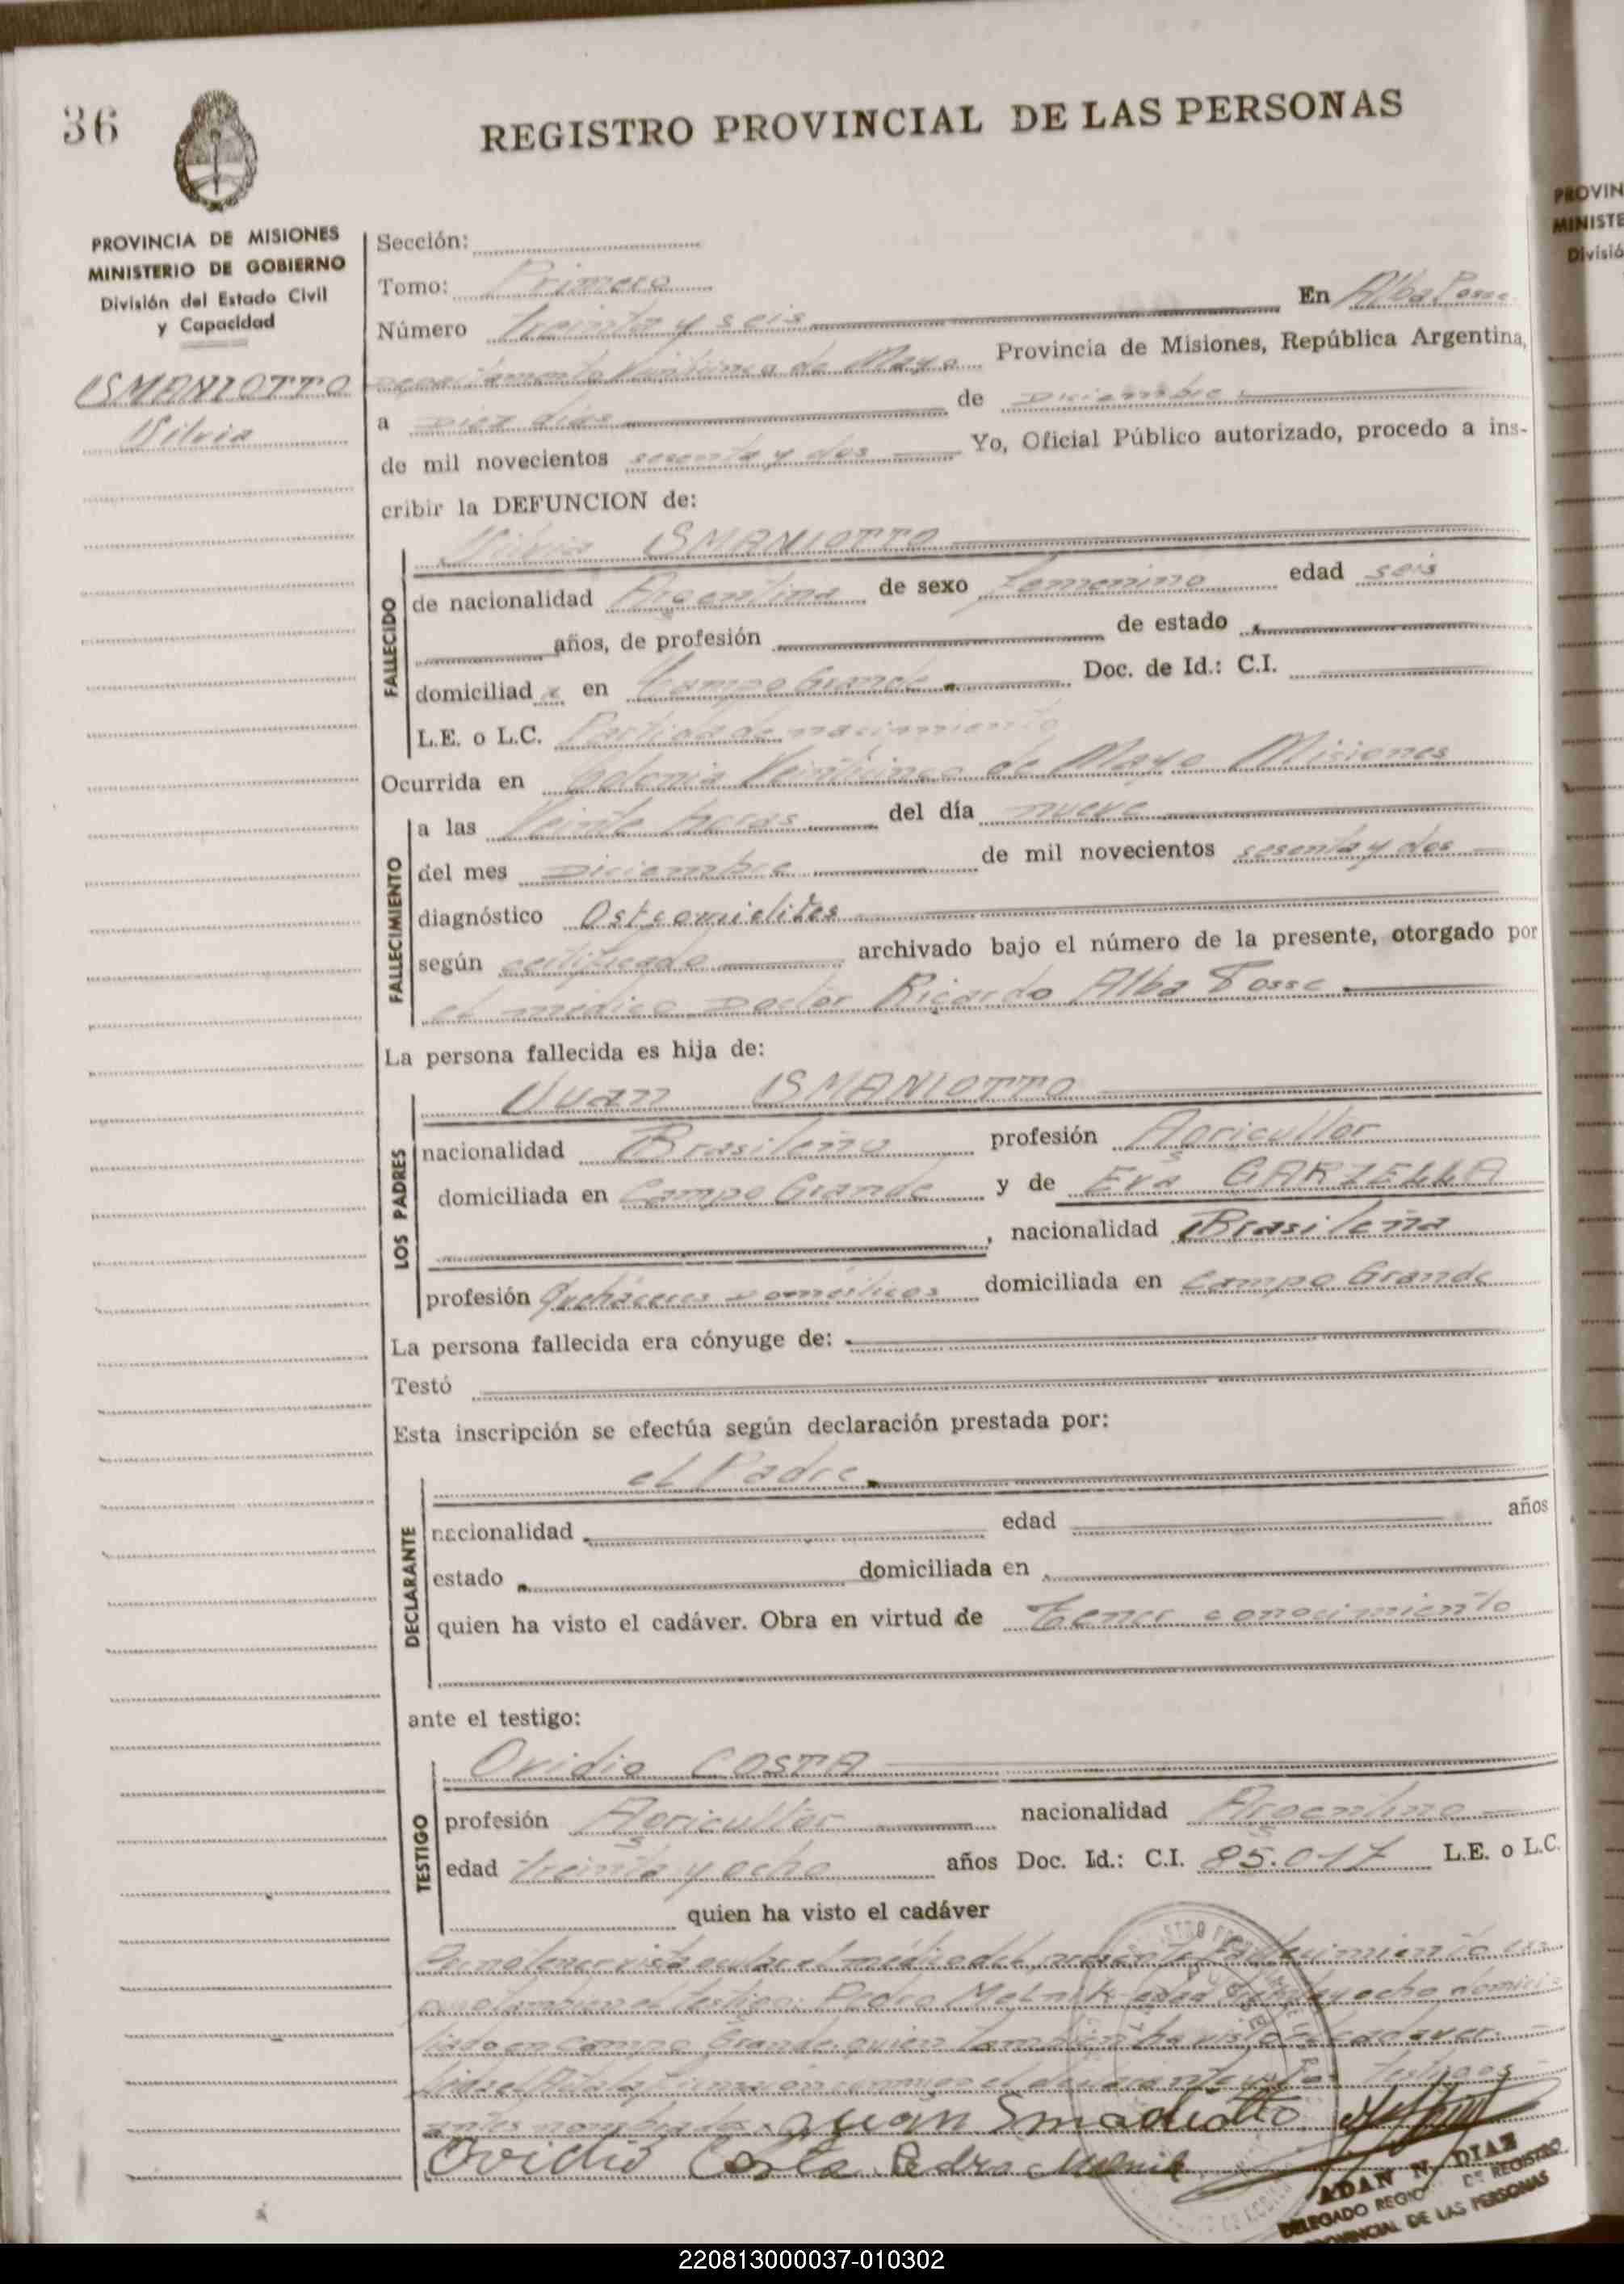 36
REGISTRO PROVINCIAL DE LAS PERSONAS
PROVINCIA DE MISIONES
MINISTERIO DE GOBIERNO
División del Estado Civil
y Capacidad
SMANIOTTO
Silvia
Sección:
Tomo: Primero
Número treinta y seis En Alba Posse
departamento Veinticinco de Mayo Provincia de Misiones, República Argentina,
a Diez días de Diciembre
de mil novecientos sesenta y dos Yo, Oficial Público autorizado, procedo a ins-
cribir la DEFUNCION de:
FALLECIDO
Silvia SMANIOTTO
de nacionalidad Argentina de sexo femenino edad seis
años, de profesión de estado
domiciliad a en Campo Grande Doc. de Id.: C.I.
L.E. o L.C. Partida de nacimiento
Ocurrida en Colonia Veinticinco de Mayo Misiones
FALLECIMIENTO
a las Veinte horas del día nueve
del mes Diciembre de mil novecientos sesenta y dos
diagnóstico Osteomielites
según certificado archivado bajo el número de la presente, otorgado por
el médico Doctor Ricardo Alba Posse
La persona fallecida es hija de:
LOS PADRES
Juan SMANIOTTO
nacionalidad Brasileño profesión Agricultor
domiciliada en Campo Grande y de Eva GARZELLA
, nacionalidad Brasileña
profesión Quehaceres domésticos domiciliada en Campo Grande
La persona fallecida era cónyuge de:
Testó
Esta inscripción se efectúa según declaración prestada por:
DECLARANTE
el Padre
nacionalidad edad años
estado domiciliada en
quien ha visto el cadáver. Obra en virtud de tener conocimiento
ante el testigo:
TESTIGO
Ovidio COSTA
profesión Agricultor nacionalidad Argentino
edad treinta y ocho años Doc. Id.: C.I. 85.017 L.E. o L.C.
quien ha visto el cadáver
Por no tener vista ocular el médico del presente fallecimiento
también el testigo: Pedro edad y ocho domici
liado en Campo Grande, quien también ha visto el cadáver.
el Acta firman conmigo el declarante y los testigos
antes nombrados. Juan Smaniotto
Ovidio Costa Pedro
ADAN N. DIAZ
DELEGADO REGIO DE REGISTRO
PROVINCIAL DE LAS PERSONAS
PROVIN
MINISTE
Divisió
220813000037-010302